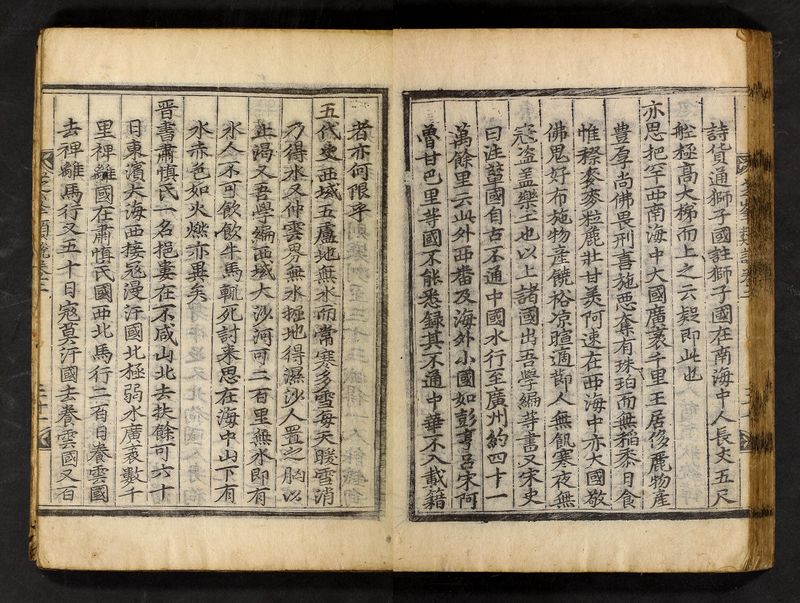 詩貨通獅子國註獅子國在南海中人長丈五尺
舩極高大梯而上之云疑即此也
亦思把罕西南海中大國廣袤千里王居侈麗物產
豊厚尚佛畏刑喜施惡奪有珠珀而無稲黍日食
惟穄麥麥粒麄壯甘美阿速在西海中亦大國敬
佛鬼好布施物產饒裕凉暄適節人無飢寒夜無
盗盖樂土也以上諸國出吾學編等書又宋史
曰注輦國自古不通中國水行至廣州約四十一
萬餘里云此外西畨及海外小國如彭亨呂宋阿
魯甘巴里等國不能悉録其不通中華不入載籍
者亦何限乎
五代史西域五廬地無水而常寒多雪每天暖雪消
乃得水又仲雲界無水掘地得濕沙人置之胸以
止渴又吾學編西域大沙河可二百里無水即有
水人不可飮飮牛馬輒死討來思在海中山下有
水赤色如火燃亦異矣
晋書肅慎氏一名挹婁在不咸山北去扶餘可六十
日東濱大海西接寇漫汗國北極弱水廣袤數千
里裨離國在肅慎氏國西北馬行二百日養雲國
去裨離馬行又五十日寇莫汗國去養雲國又百